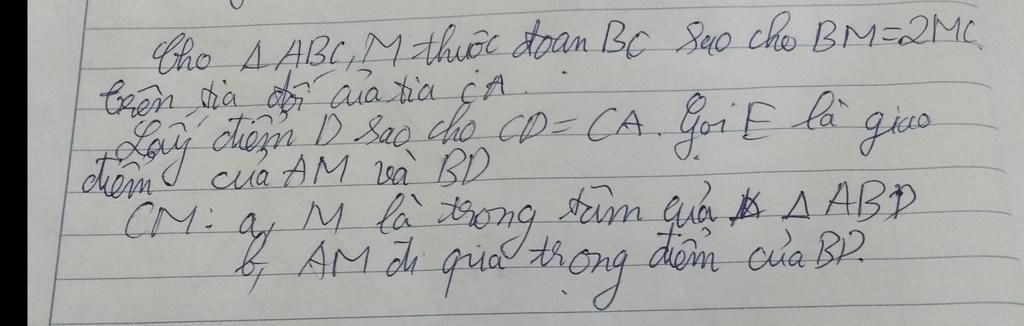 Cho Δ ABC, M thuộc đoạn BC sao cho BM=2MC.
trên tia đối của tia CA.
Lấy điểm D sao cho CD = CA. Gọi E là giao
điểm của AM và BD
CM: a, M là trọng tâm của Δ ABD
b, AM đi qua trong điểm của BD.